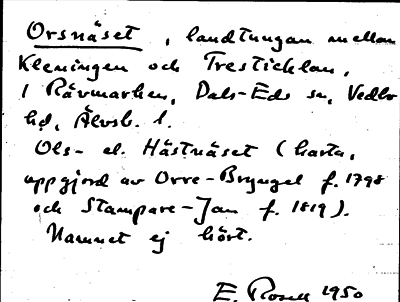 Orsnäset, landtungan mellan
Kleningen och Tresticklan,
i Rävmarken, Dals-Eds sn, Vedbo
hd, Älvsb. l.
Ols- el. Hästnäset (karta,
uppgjord av Orre-Bryngel f. 1798
och Stampare-Jan f. 1819).
Namnet ej hört.
E. Rosell 1950